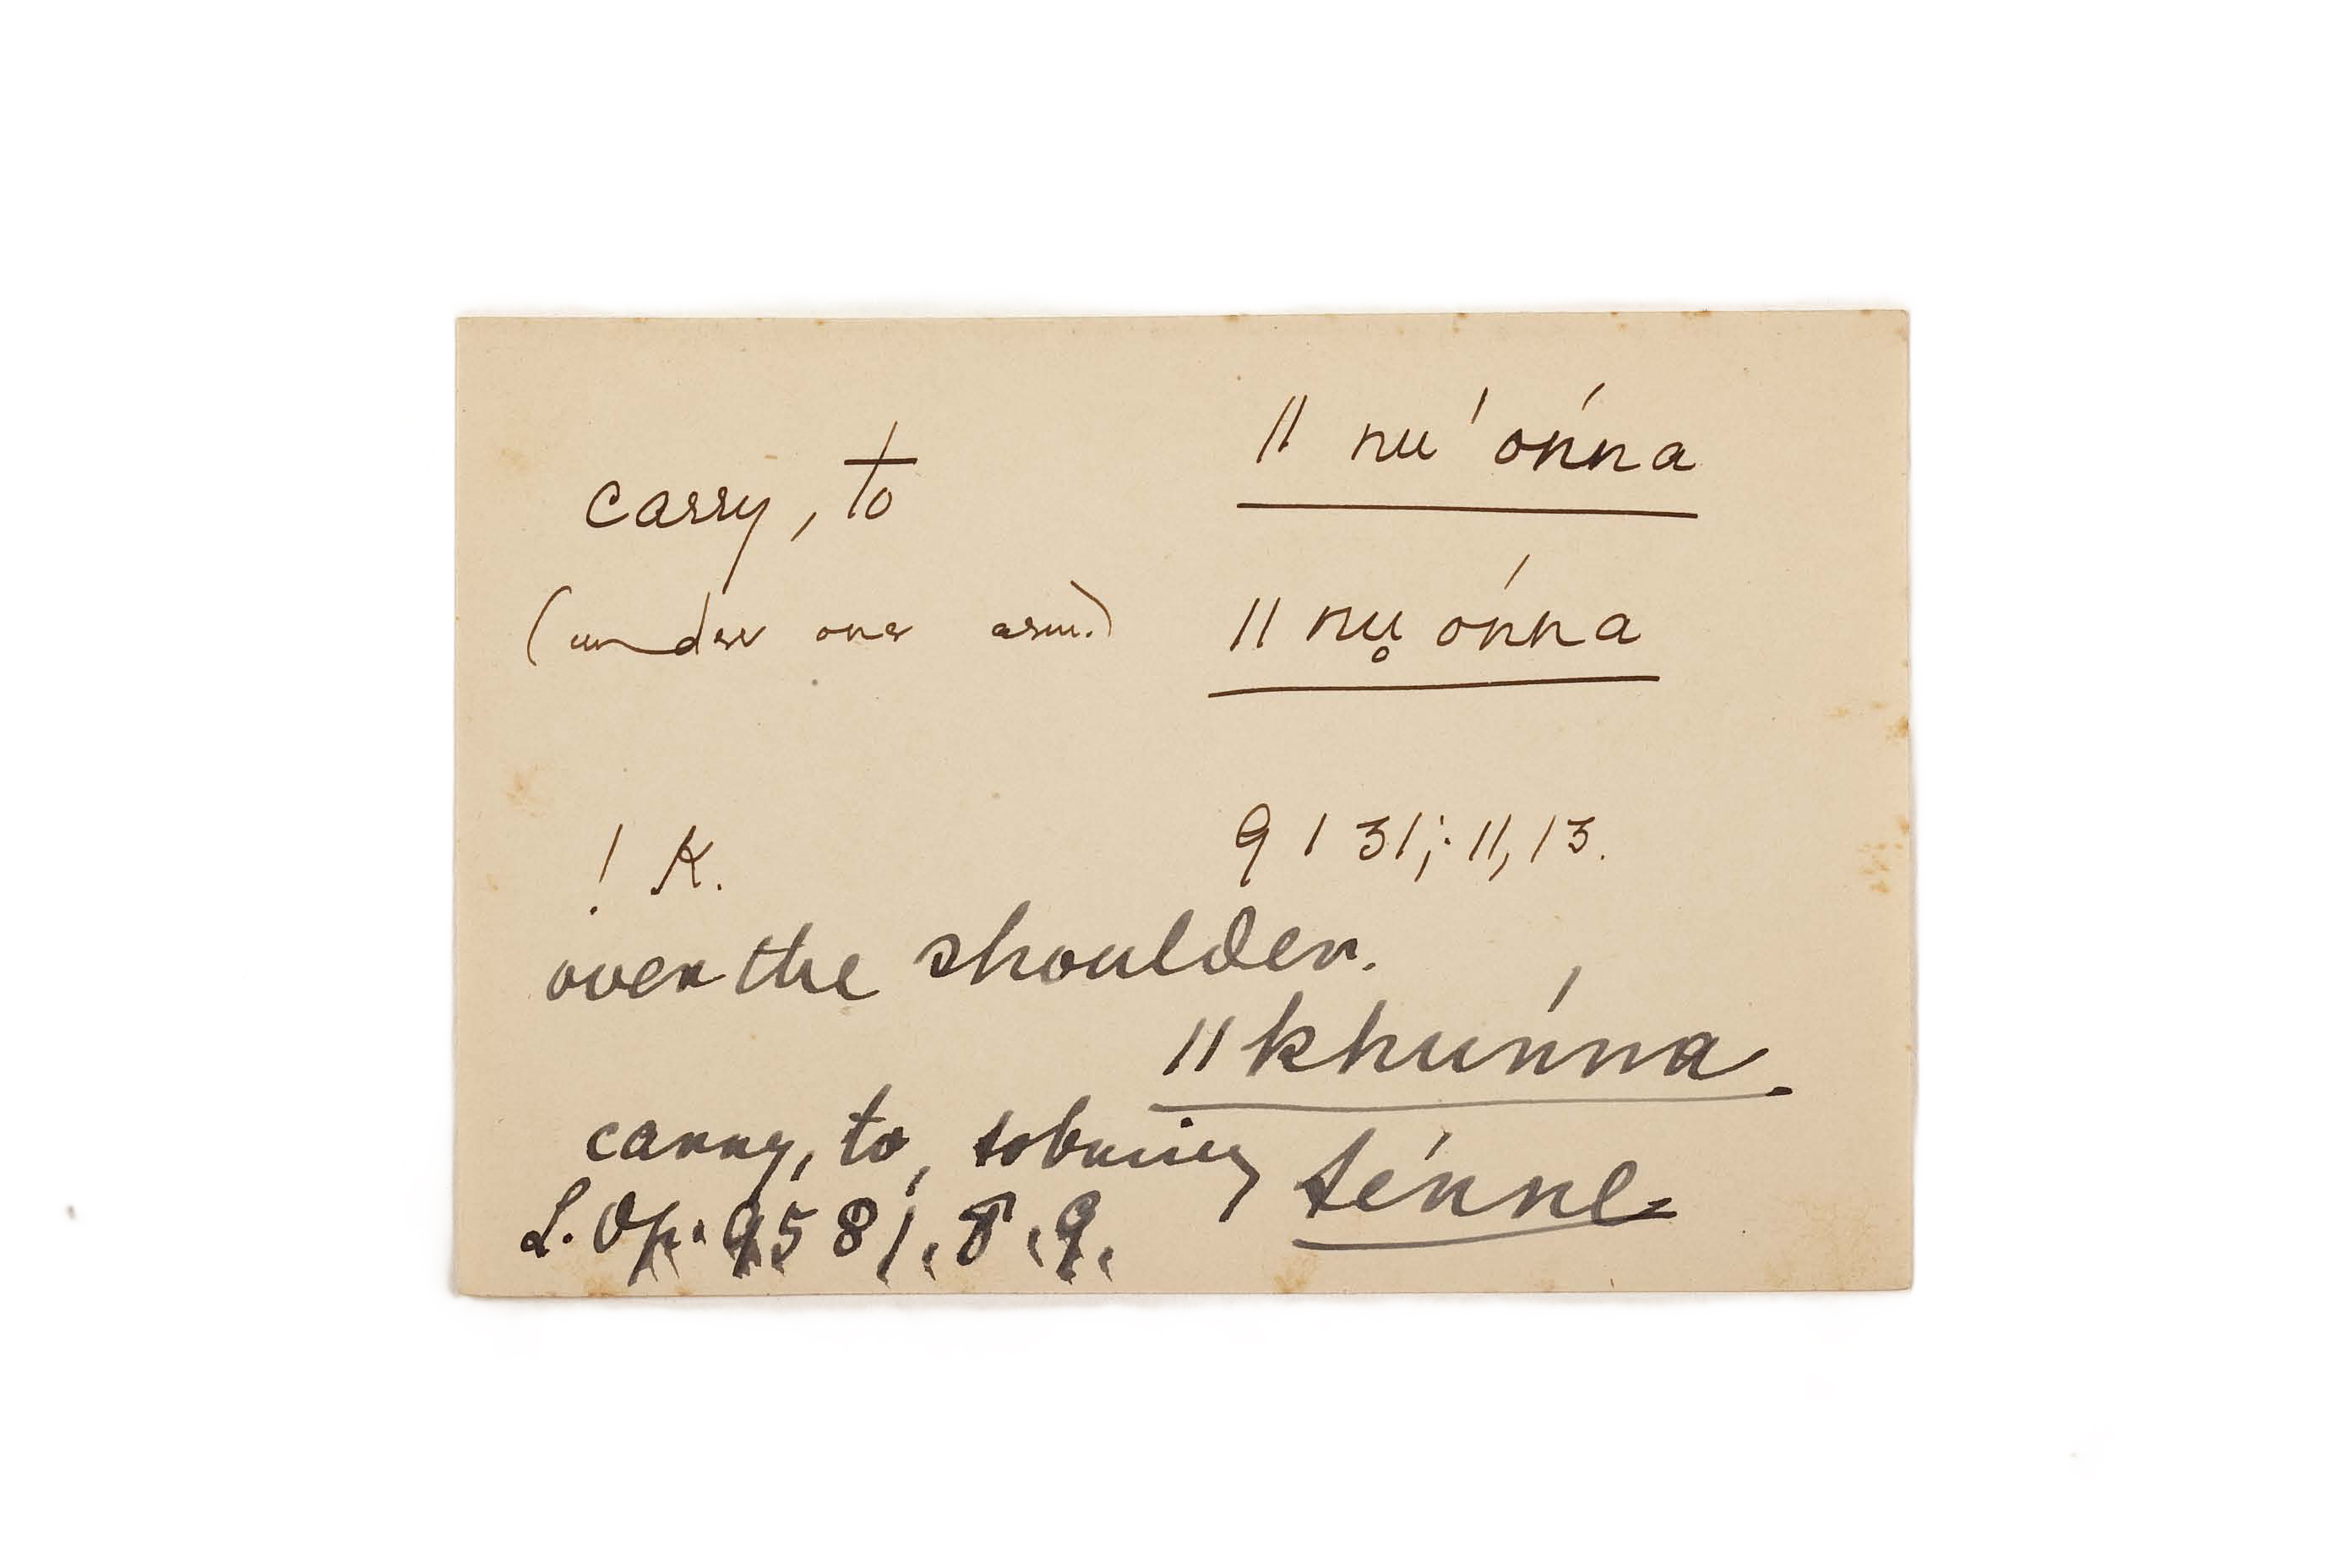 carry, to ǁ nu' óńna
(under one arm.) ǁ nu̥ ońna
! K. 9131; 11, 13.
over the shoulder.
ǁkhuńna.
carry, to, to bring
téńne
L. Op. 9581. 8. 9.